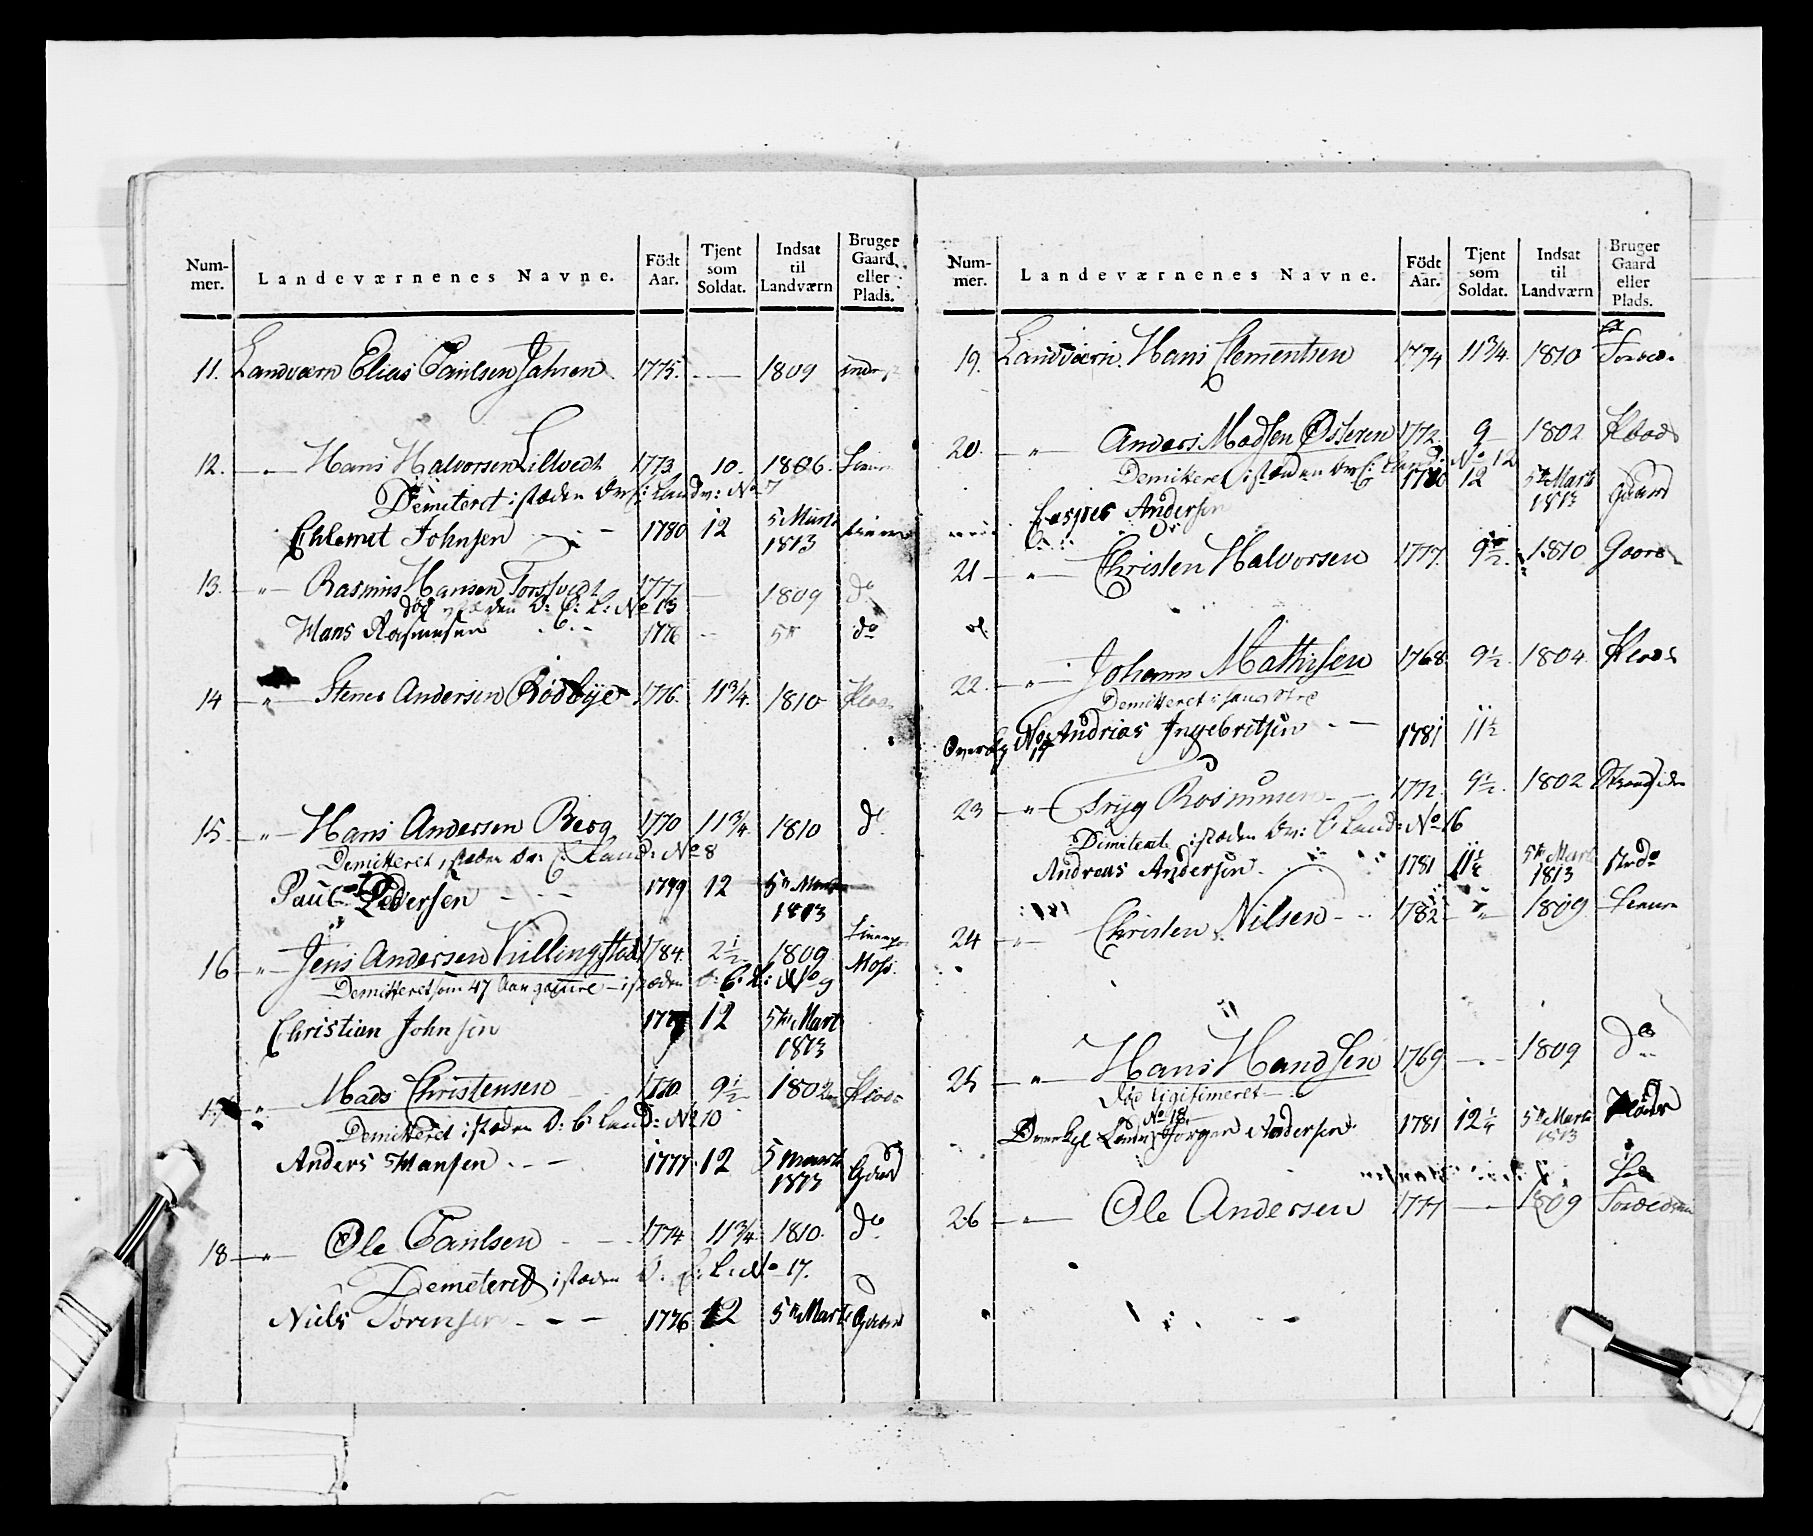 Num-mer. Landeværnenes Navne. Födt Aar. Tjent som Soldat. Indsat til Landværn Bruger Gaard eller Plads.
11. Landværn Elias Paulsen Jahren 1775. — 1809
12. — " — Hans Halvorsen Lilvedt 1773 10. 1806.
Demiteret i stæden Ov: C: Landv: No 7
Ehlemet Johnsen — 1780 12 5 Marts 1813
13. — " — Rasmus Hansen Torsfvedt 1777 — 1809 do
død i stæden O: C: L: No 13
Hans Rasmusen 1776 — 5te do
14 — " — Stener Andersen Rödbye 1776. 11 3/4. 1810
15 — " — Hans Andersen Berg 1770 11 3/4. 1810 do
Demitteret i stæden Ov: C: Land: No 8
Paul Pedersen — — 1779 12 5te Marts 1813
16 — " — Jens Andersen Killingstad 1784. 2 1/2 1809 Moss.
Demitteret som 47 Aar gammel — i stæden O: C: L: No 9
Christian Johnsen 12 5te Mart 1813
17 " Mads Christensen 9 1/2 1802
Demitteret i stæden O: C: Land: No 10
Anders Hansen — — 1777 12 5 Marts 1813 Gaard
18 — " — Ole Paulsen — — 1774 11 3/4 1810. do
Demeteret i stæden O: C: L: No 17.
Niels Sörensen — — 1776 12 5te Marts Gaard
Num-mer. Landeværnenes Navne. Födt Aar. Tjent som Soldat. Indsat til Landværn Bruger Gaard eller Plads.
19. Landværn. Hans Clementsen 1774 11 3/4. 1810
20. — " — Anders Madsen Østeren 1772. 9 1802 Plads
Demitteret i stæden Ov: C: Land: No 12
Casper Andersen 1780 12 5te Marts 1813 Gaard
21 — " — Christen Halvorsen 1777. 9 1/2. 1810 Gaard
22. — " — Johann Mathisen 1768 9 1/2. 1804 Plads
Demitteret
No 14 Andrias Ingebritsen — — 1781 11 1/2
23 — " — Tryg Rasmusen — 1772 9 1/2. 1802 Strandsiden
Dimiteret i stæden Ov: C Land: No 16
Andreas Andersen 1781 11 1/2 5te Marts 1813 do
24 — " — Christen Nilsen — 1782 — " — 1809
25 — " — Hans Handsen 1769 — 1809 do
No 18
Jörgen Andersen 1781 12 1/4 5te Marts 1813
26 — " — Ole Andersen 1777 — 1809